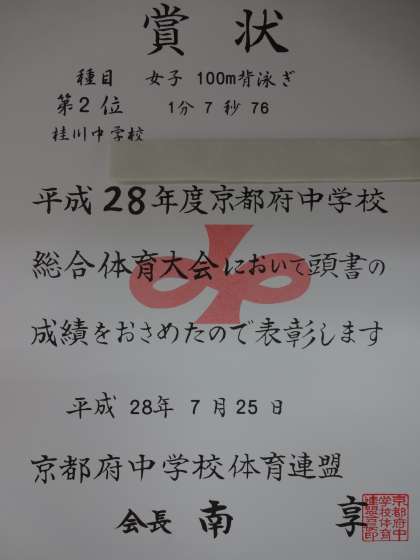 賞状
種目 女子 100m背泳ぎ
第2位 1分7秒76
桂川中学校
平成28年度京都府中学校
総合体育大会において頭書の
成績をおさめたので表彰します
平成 28年 7月25日
京都府中学校体育連盟
会長 南 享
京都府中
学校体育
連盟会印